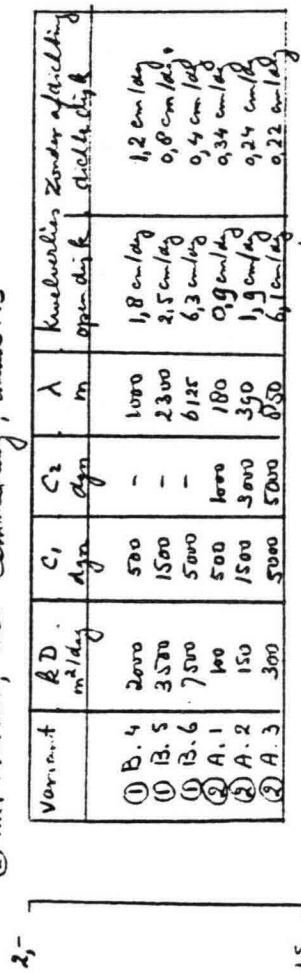 Variant kD C₁ C₂ λ Kwelverlies Zonder afdichting
m²/dag. dgn dgn m open dijk dichte dijk
① B.4 2000 500 - 1000 1,8 cm/dag 1,2 cm/dag
① B.5 3500 1500 - 2300 2,5 cm/dag 0,8 cm/dag
① B.6 7500 5000 - 6125 6,3 cm/dag 0,4 cm/dag
② A.1 100 500 1000 180 0,9 cm/dag 0,34 cm/dag
② A.2 150 1500 3000 390 1,9 cm/dag 0,24 cm/dag
② A.3 300 5000 5000 850 6,1 cm/dag 0,22 cm/dag
2,-